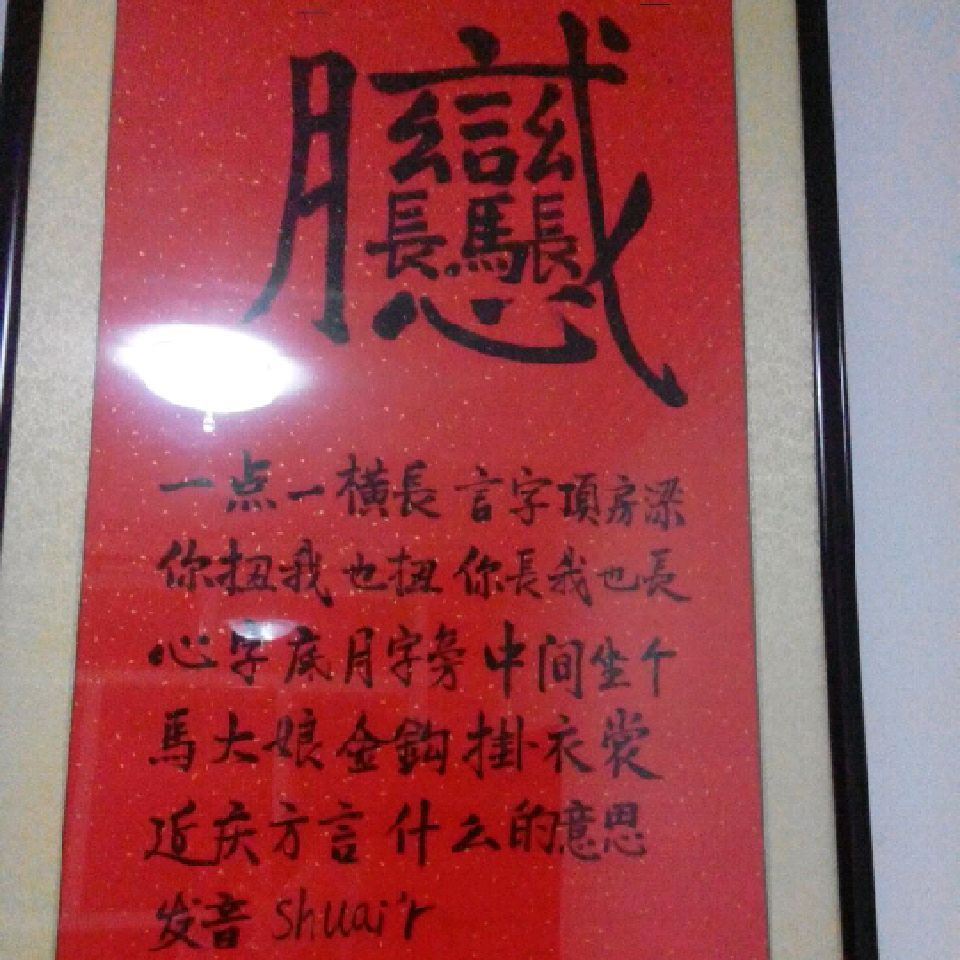 一点一横長 言字頂房梁
你扭我也扭 你長我也長
心字底月字旁 中间坐个
馬大娘 金鈎掛衣裳
近庆方言 什么的意思
发音 Shuai'r